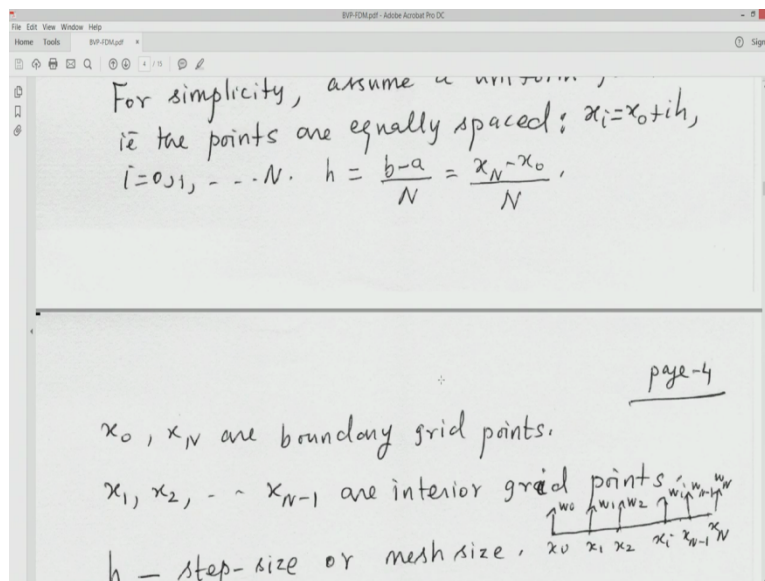 BVP-FDM.pdf - Adobe Acrobat Pro DC
File Edit View Window Help
Home Tools BVP-FDM.pdf × Sign
4 / 15
For simplicity, assume a uniform
ie the points are equally spaced: xᵢ=x₀+ih,
i=0,1, - - - N. h = (b-a)/N = (x_N - x₀)/N.
page-4
x₀, x_N are boundary grid points.
x₁, x₂, - - x_{N-1} are interior grid points.
w₀ w₁ w₂ wᵢ w_{N-1} w_N
h — step-size or mesh size. x₀ x₁ x₂ xᵢ x_{N-1} x_N